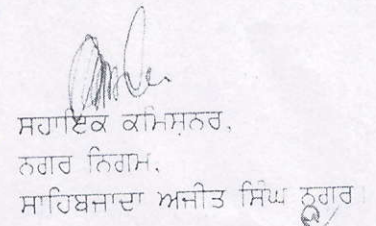 ਸਹਾਇਕ ਕਮਿਸ਼ਨਰ,
ਨਗਰ ਨਿਗਮ,
ਸਾਹਿਬਜਾਦਾ ਅਜੀਤ ਸਿੰਘ ਨਗਰ